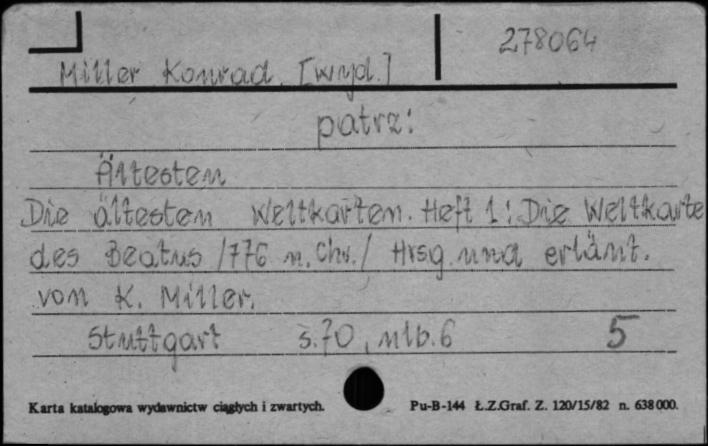 278064
Miller Konrad. [wyd.]
patrz:
Ältesten
Die ältesten Weltkarten. Heft 1: Die Weltkarte
des Beatus /776 n. Chr./ Hrsg. und erläut.
von K. Miller.
Stuttgart s. 70, nlb. 6 5
Karta katalogowa wydawnictw ciągłych i zwartych. Pu-B-144 Ł.Z.Graf. Z. 120/15/82 n. 638000.